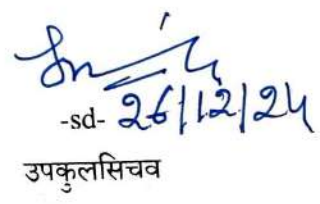 -sd- 26/12/24
उपकुलसिचव